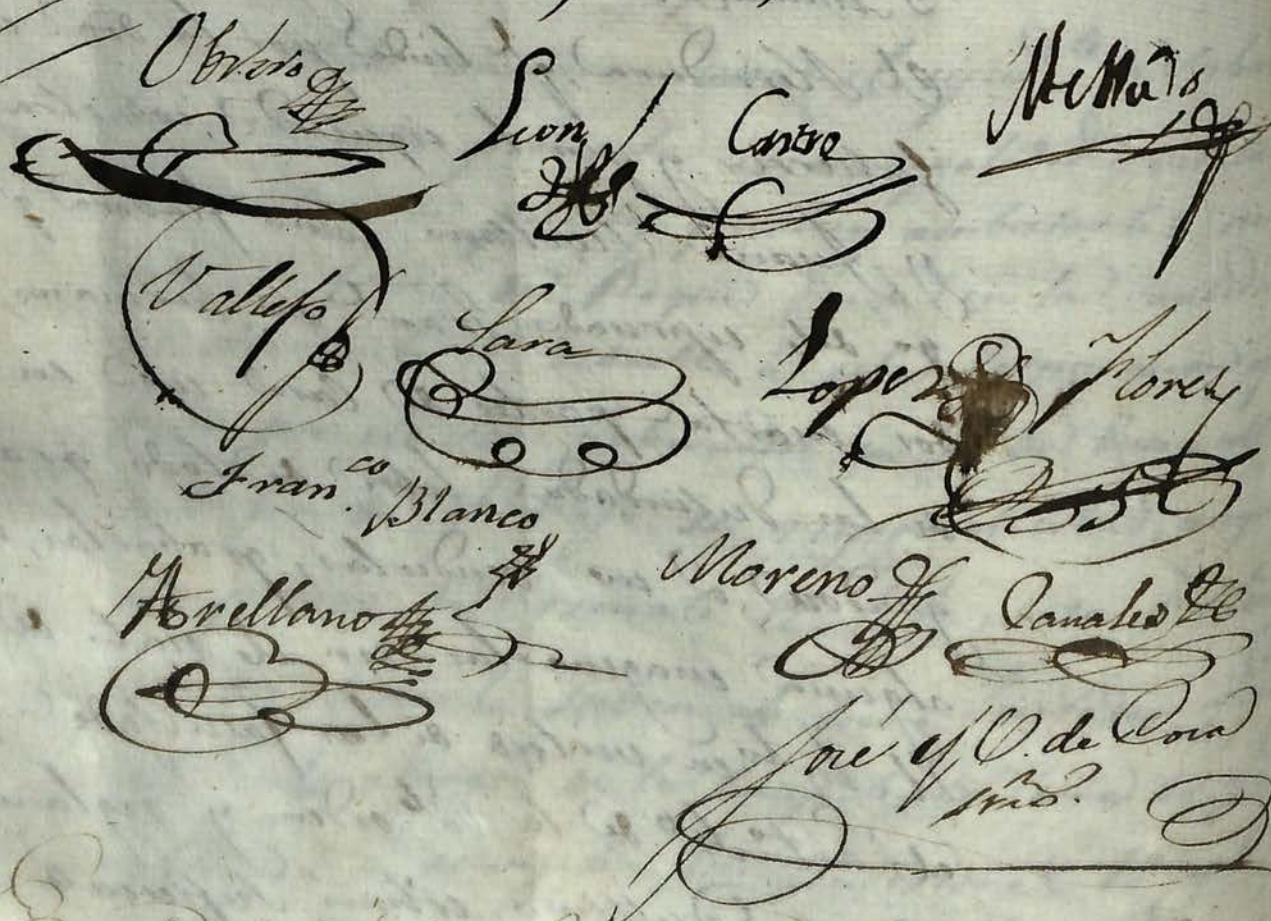 Obrero Leon Castro
Vallejo Lara Lopez Flores
Fran.co Blanco
Arellano Moreno Canales
José de
srio.